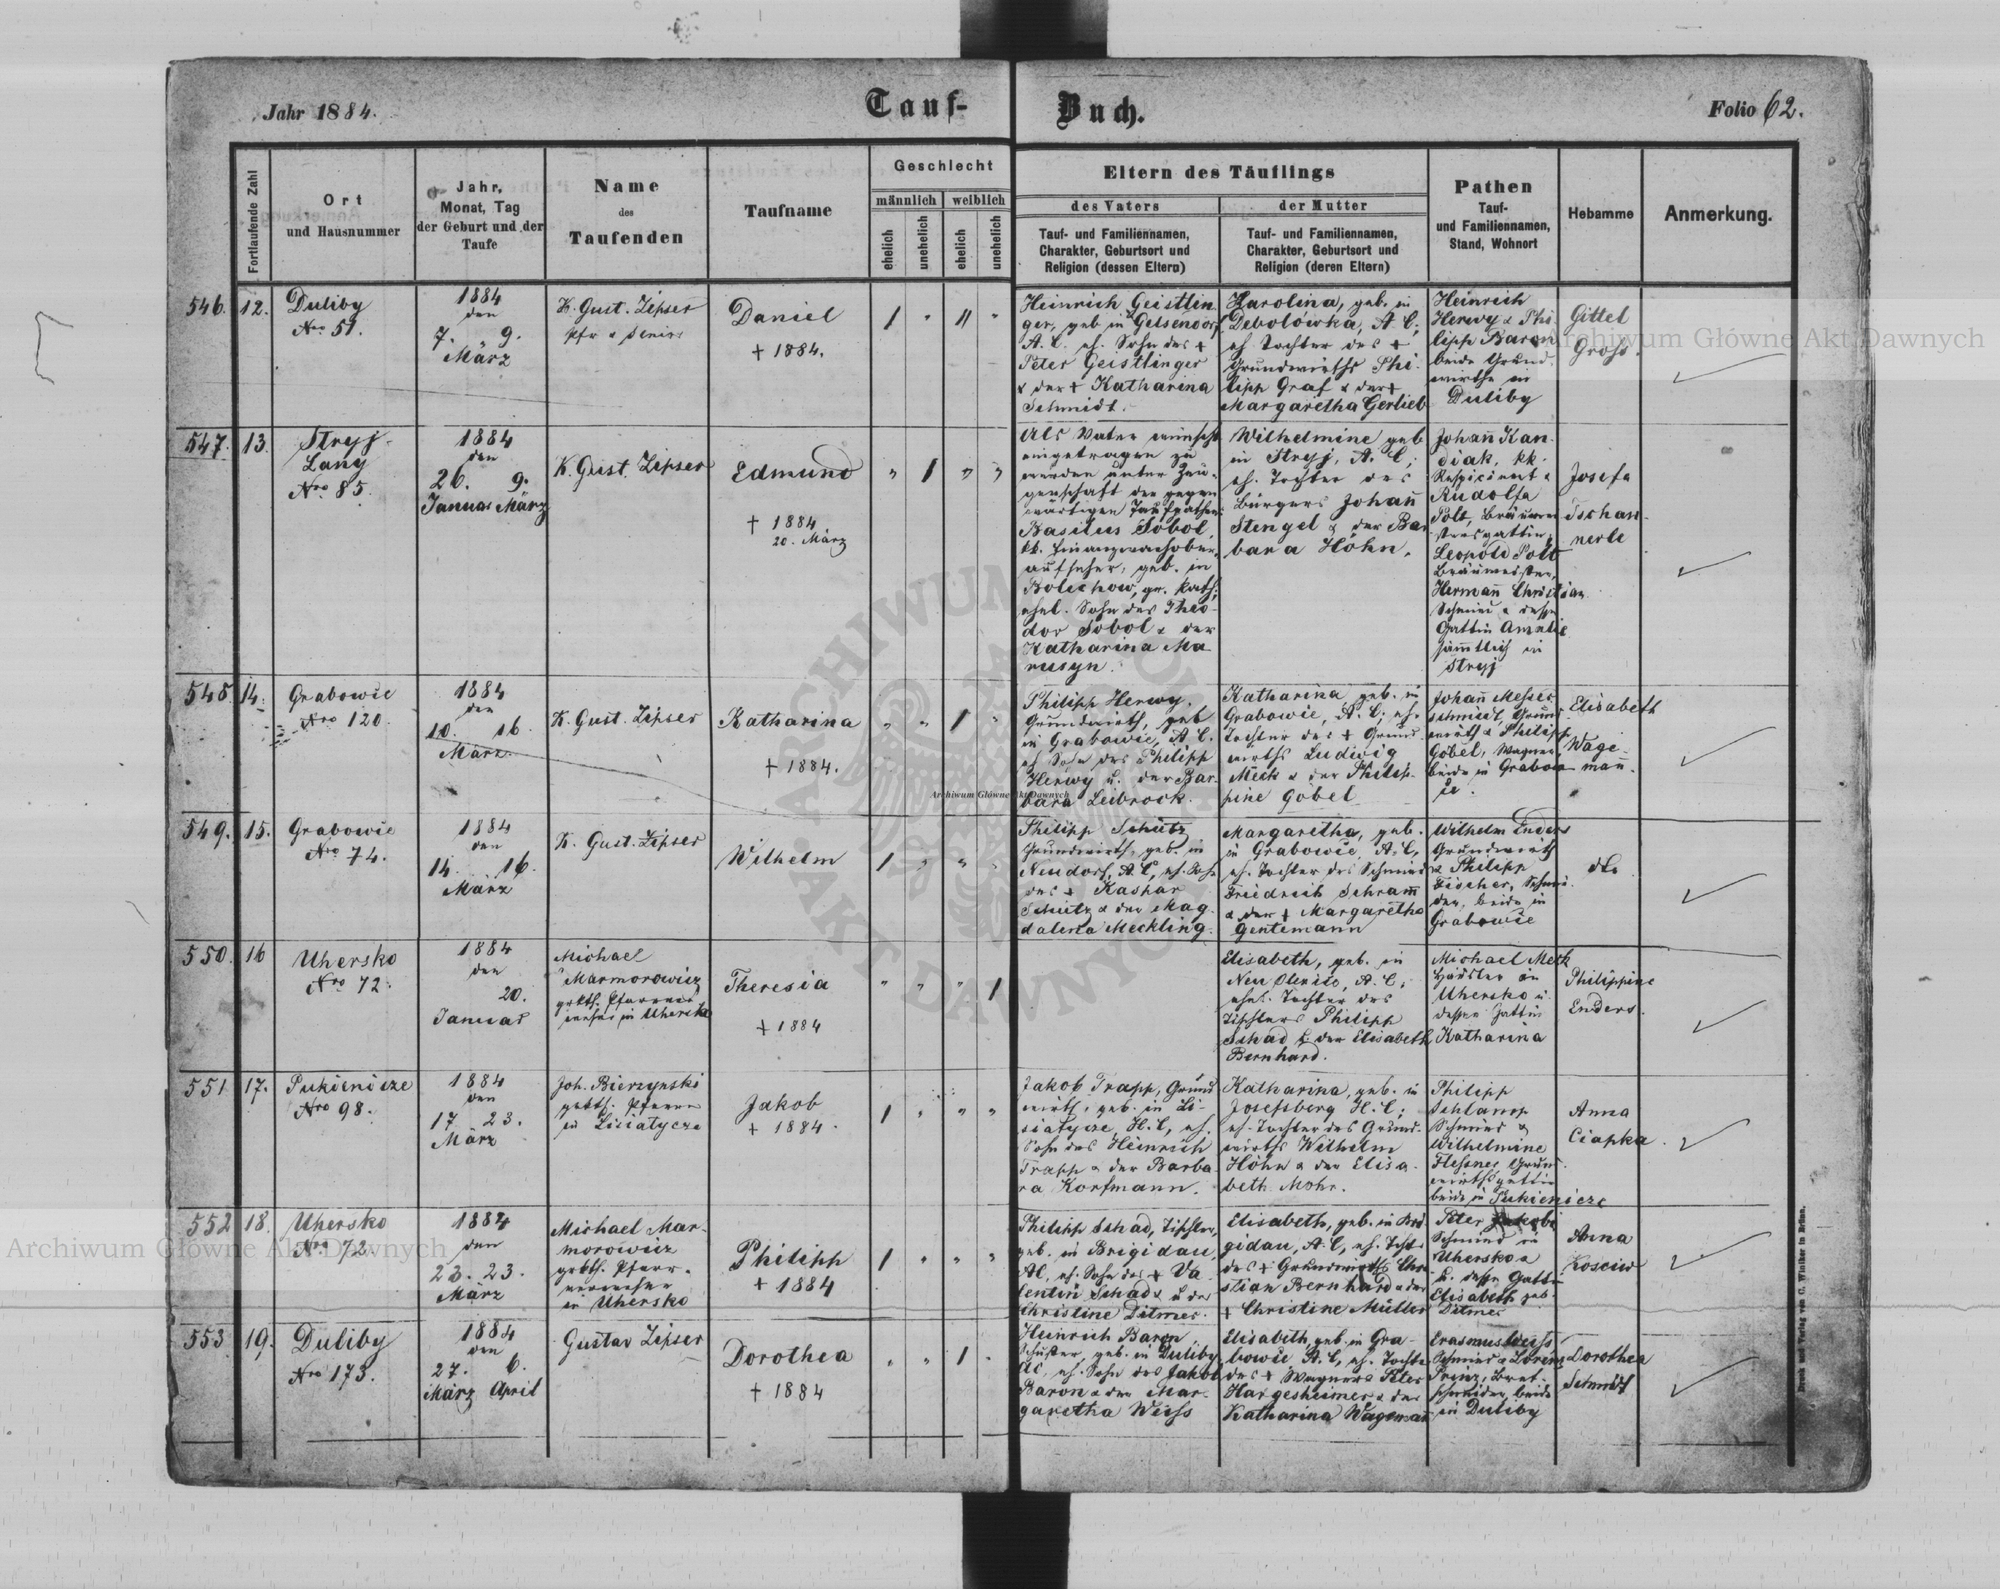 Jahr 1884.
Tauf-
Buch.
Folio 62.
Fortlaufende Zahl
Ort
und Hausnummer
Jahr,
Monat, Tag
der Geburt und der
Taufe
Name
des
Taufenden
Taufname
Geschlecht
männlich
weiblich
ehelich
unehelich
ehelich
unehelich
Eltern des Täuflings
des Vaters
der Mutter
Tauf- und Familiennamen,
Charakter, Geburtsort und
Religion (dessen Eltern)
Tauf- und Familiennamen,
Charakter, Geburtsort und
Religion (deren Eltern)
Pathen
Tauf-
und Familiennamen,
Stand, Wohnort
Hebamme
Anmerkung.
546. 12.
Duliby
Nro 51.
1884
den
7. 9.
März
K. Gust. Zipser
Pfr & Senior
Daniel
+ 1884.
Heinrich Geistlin
ger, geb in Gelsendorf
A. C. eh. Sohn des +
Peter Geistlinger
& der + Katharina
Schmidt.
Karolina, geb. in
Debolówka, A. C;
eh. Tochter des +
Grundwirths Phi-
lipp Graf & der +
Margaretha Gerlieb
Heinrich
Herwy & Phi
lipp Baron
beide Grund
wirthe in
Duliby
Gittel
Groß.
547. 13.
Stryj-
Lany
Nro 85.
1884
den
26. 9.
Januar März
K. Gust. Zipser
Edmund
+ 1884
20. März
Als Vater wünscht
eingetragen zu
werden unter Zeu-
genschaft der gegen
wärtigen Taufpathen
Basilus Sobol,
kk. Finanzwachober
aufseher, geb. in
Bolechow, gr. kath;
ehel. Sohn des Theo-
dor Sobol & der
Katharina Ma
rusyn.
Wilhelmine geb
in Stryj, A. C;
eh. Tochter des
Bürgers Johañ
Stengel & der Bar
bara Höhn.
Johañ Kan-
diak, kk.
Respicient &
Rudolfa
Polt, Bräumei
stersgattin,
Leopold Polt
Bräumeister,
Hermañ Christian
Schmied & dessen
Gattin Amalie
säm̃tlich in
Stryj
Josefa
Tschan-
nerle
548. 14.
Grabowie
Nro 120.
1884
den
10. 16.
März.
K. Gust. Zipser
Katharina
+ 1884.
Philipp Herwy,
Grundwirth, geb
in Grabowie, A. C.
eh Sohn des Philipp
Herwy u. der Bar
bara Leibrock.
Katharina geb. in
Grabowie, A. C; eh.
Tochter des + Grund
wirths Ludwig
Meck & der Philip-
pine Göbel
Johañ Messer
schmidt, Grund
wirth & Philipp
Göbel, Wagner
beide in Grabow
ie.
Elisabeth
Wage-
mañ.
549. 15.
Grabowie
Nro 74.
1884
den
14. 16.
März
K. Gust. Zipser
Wilhelm
Philipp Schütz
Grundwirth, geb. in
Neudorf, A. C, eh. Sohn
des + Kaspar
Schütz & der Mag
dalena Meckling.
Margaretha, geb.
in Grabowie, A. C,
eh. Tochter des Schmied
Friedrich Schram̃
& der + Margaretha
Gentemann
Wilhelm Enders
Grundwirth
& Philipp
Fischer, Schmi
der, beide in
Grabowie
dto
550. 16
Uhersko
Nro 72.
1884
den
20.
Januar
Michael
Marmorowicz
grkth. Pfarrver
weser in Uhersko
Theresia
+ 1884
Elisabeth, geb. in
Neu Oleksic, A. C,
ehel. Tochter des
Tischlers Philipp
Schad & der Elisabeth
Bernhard.
Michael Meck
Häusler in
Uhersko u.
dessen Gattin
Katharina
Philippine
Enders.
551 17.
Pukienicze
Nro 98.
1884
den
17 23.
März
Joh. Bierzynski
grkth. Pfarrer
in Lisiatycze
Jakob
+ 1884.
Jakob Trapp, Grund
wirth, geb. in Li-
siatycze, H. C, eh.
Sohn des Heinrich
Trapp & der Barba
ra Korfmann.
Katharina, geb. in
Josefsberg H. C;
eh. Tochter des Grund-
wirths Wilhelm
Höhn & der Elisa-
beth Mohr.
Philipp
Schlamp
Schmied &
Wilhelmine
Flessner, Grund
wirthsgattin
beide in Pukienicze
Anna
Ciapka.
552 18.
Uhersko
Nro 72.
1884
den
23. 23.
März
Michael Mar-
morowicz
grkth. Pfarr-
verweser
in Uhersko
Philipp
+ 1884
Philipp Schad, Tischler,
geb. in Brigidau,
AC, eh. Sohn des + Va-
lentin Schad & u der
Christine Ditmer.
Elisabeth, geb. in Bri
gidau, A. C, eh. Tocht
des + Grundwirths Chri
stian Bernhard & der
+ Christine Müller
Peter Jakobi
Schmied in
Uhersko
u. dessen Gattin
Elisabeth geb.
Ditmer
Anna
Kosciw
553 19.
Duliby
Nro 173.
1884
den
27. 6.
März April
Gustav Zipser
Dorothea
+ 1884
Heinrich Baron,
Schuster, geb. in Duliby
AC, eh. Sohn des Jakob
Baron & der Mar-
garetha Weiss
Elisabeth geb. in Gra-
bowie, A. C, eh. Tochter
des + Wagners Peter
Hargesheimer & der
Katharina Wagemañ
Erasmus Weiss
Schmied & Lorenz
Prinz, Bret-
schneider, beide
in Duliby
Dorothea
Schmidt
Druck und Verlag von C. Winiker in Brünn.
Archiwum Główne Akt Dawnych
Archiwum Główne Akt Dawnych
Archiwum Główne Akt Dawnych